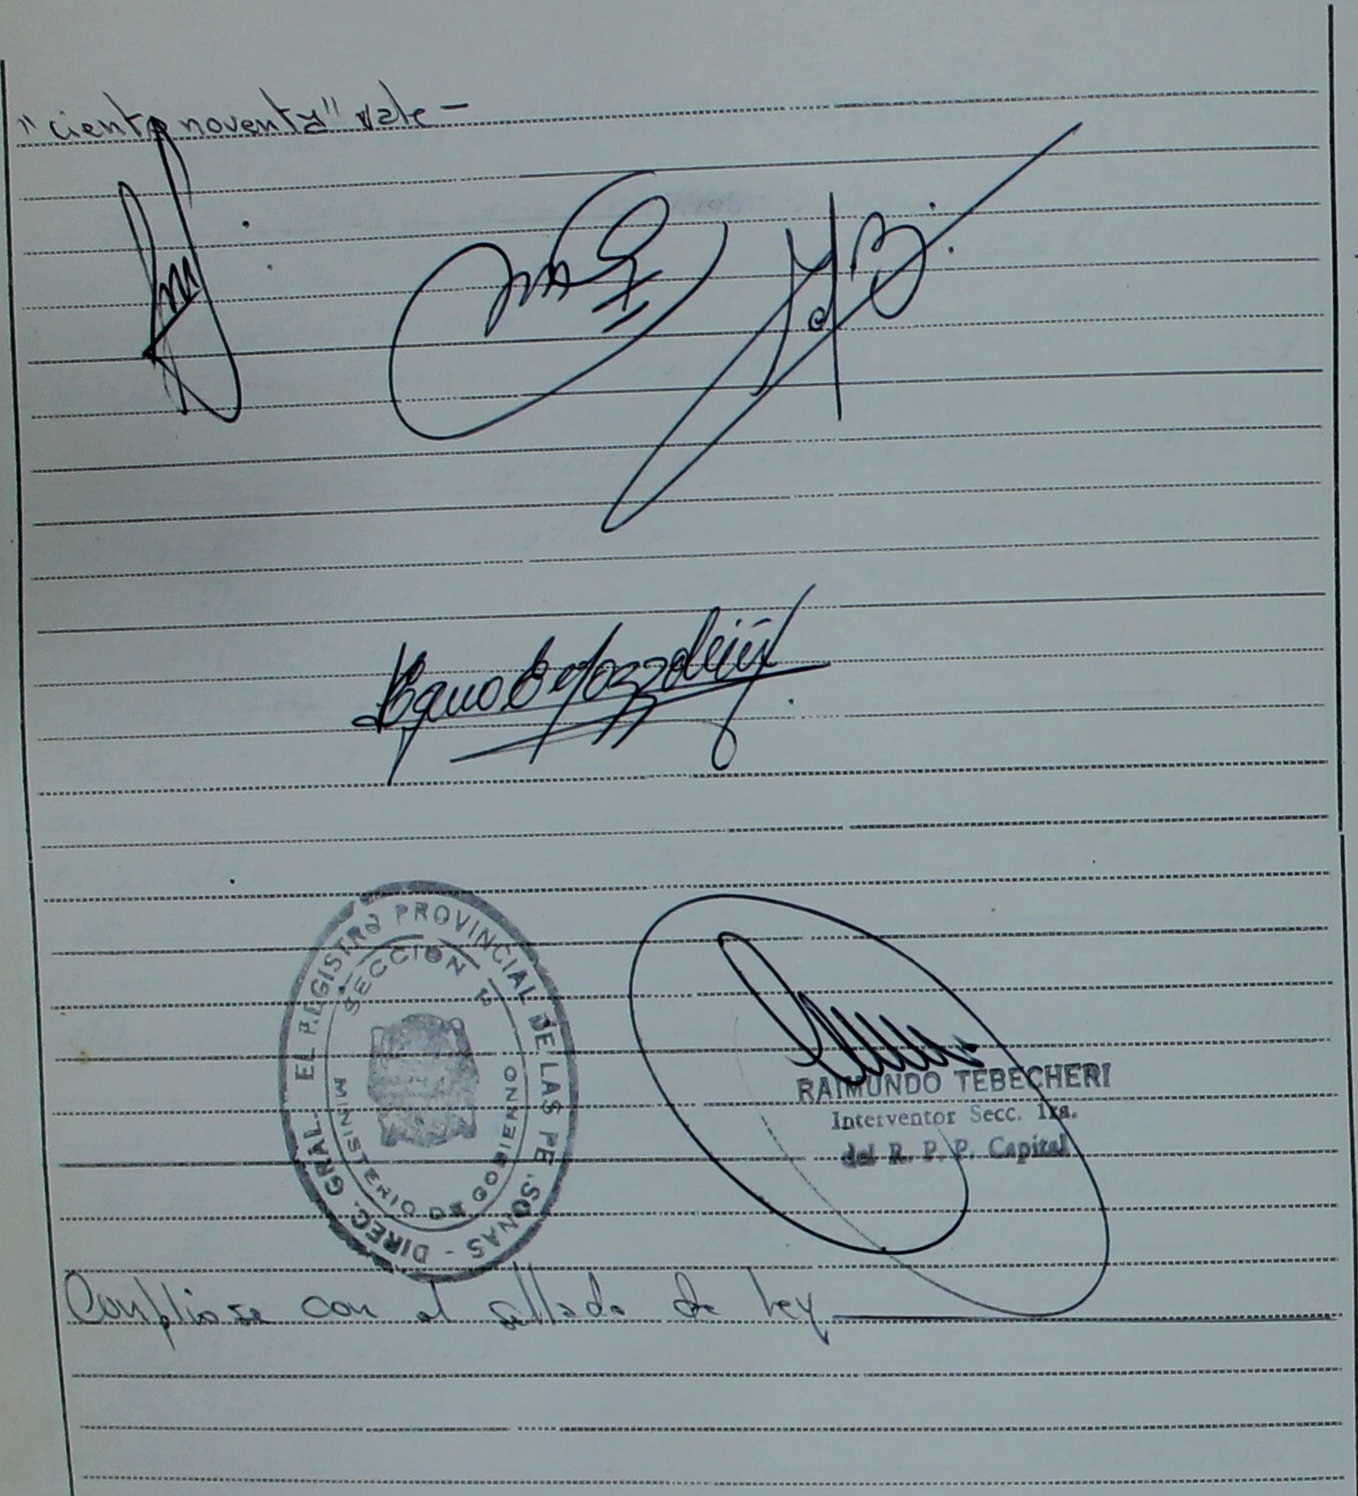 "ciento noventa" vale -
EL REGISTRO PROVINCIAL DE LAS PE.SONAS - DIREC. GRAL.
SECCION 1a
MINISTERIO DE GOBIERNO
RAIMUNDO TEBECHERI
Interventor Secc. 1ra.
del R. P. P. Capital
Conpliose con el sellado de ley